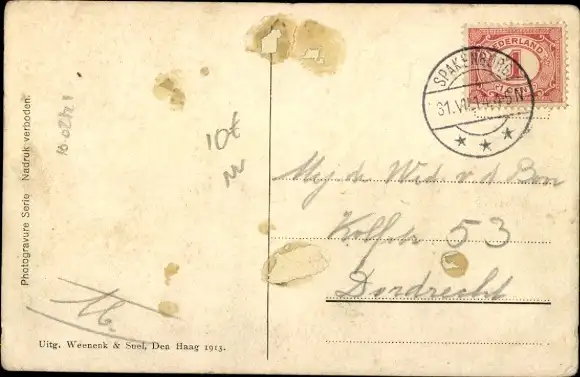 Photogravure Serie - Nadruk verboden.
10€
M.
Uitg. Weenenk & Snel, Den Haag 1913.
NEDERLAND
1
SPAKENBURG
31.VII
Mej de Wed v d Bon
53
Dordrecht